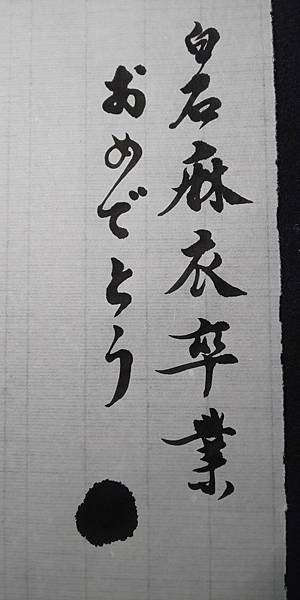 白石麻衣卒業
おめでとう